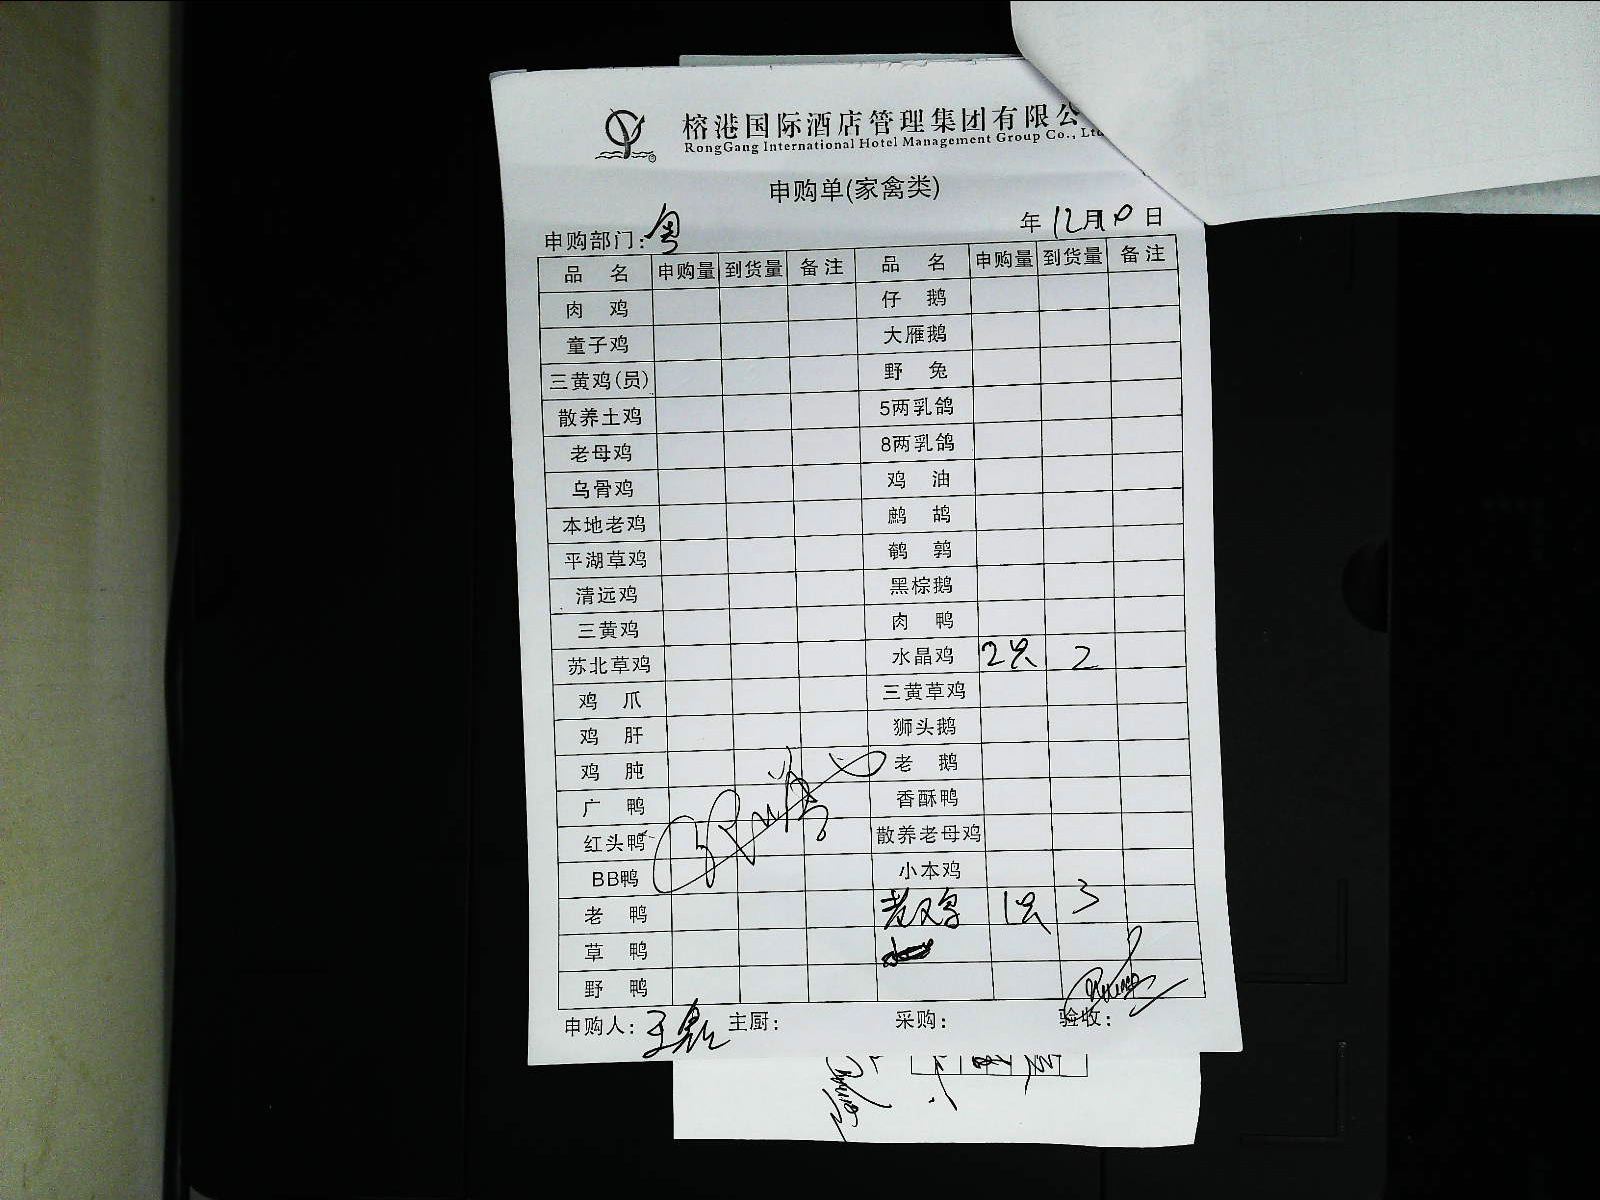 榕港国际酒店管理集团有限公
RongGang International Hotel Management Group Co., Ltd
申购单(家禽类)
申购部门：粤 年 12月10日
品 名 申购量 到货量 备注 品 名 申购量 到货量 备注
肉 鸡 仔 鹅
童子鸡 大雁鹅
三黄鸡(员) 野 兔
散养土鸡 5两乳鸽
老母鸡 8两乳鸽
乌骨鸡 鸡 油
本地老鸡 鹧 鸪
平湖草鸡 鹌 鹑
清远鸡 黑棕鹅
三黄鸡 肉 鸭
苏北草鸡 水晶鸡 2只 2
鸡 爪 三黄草鸡
鸡 肝 狮头鹅
鸡 肫 老 鹅
广 鸭 香酥鸭
红头鸭 散养老母鸡
BB鸭 小本鸡
老 鸭 老鸡 1只 3
草 鸭
野 鸭
申购人：王 主厨： 采购： 验收：